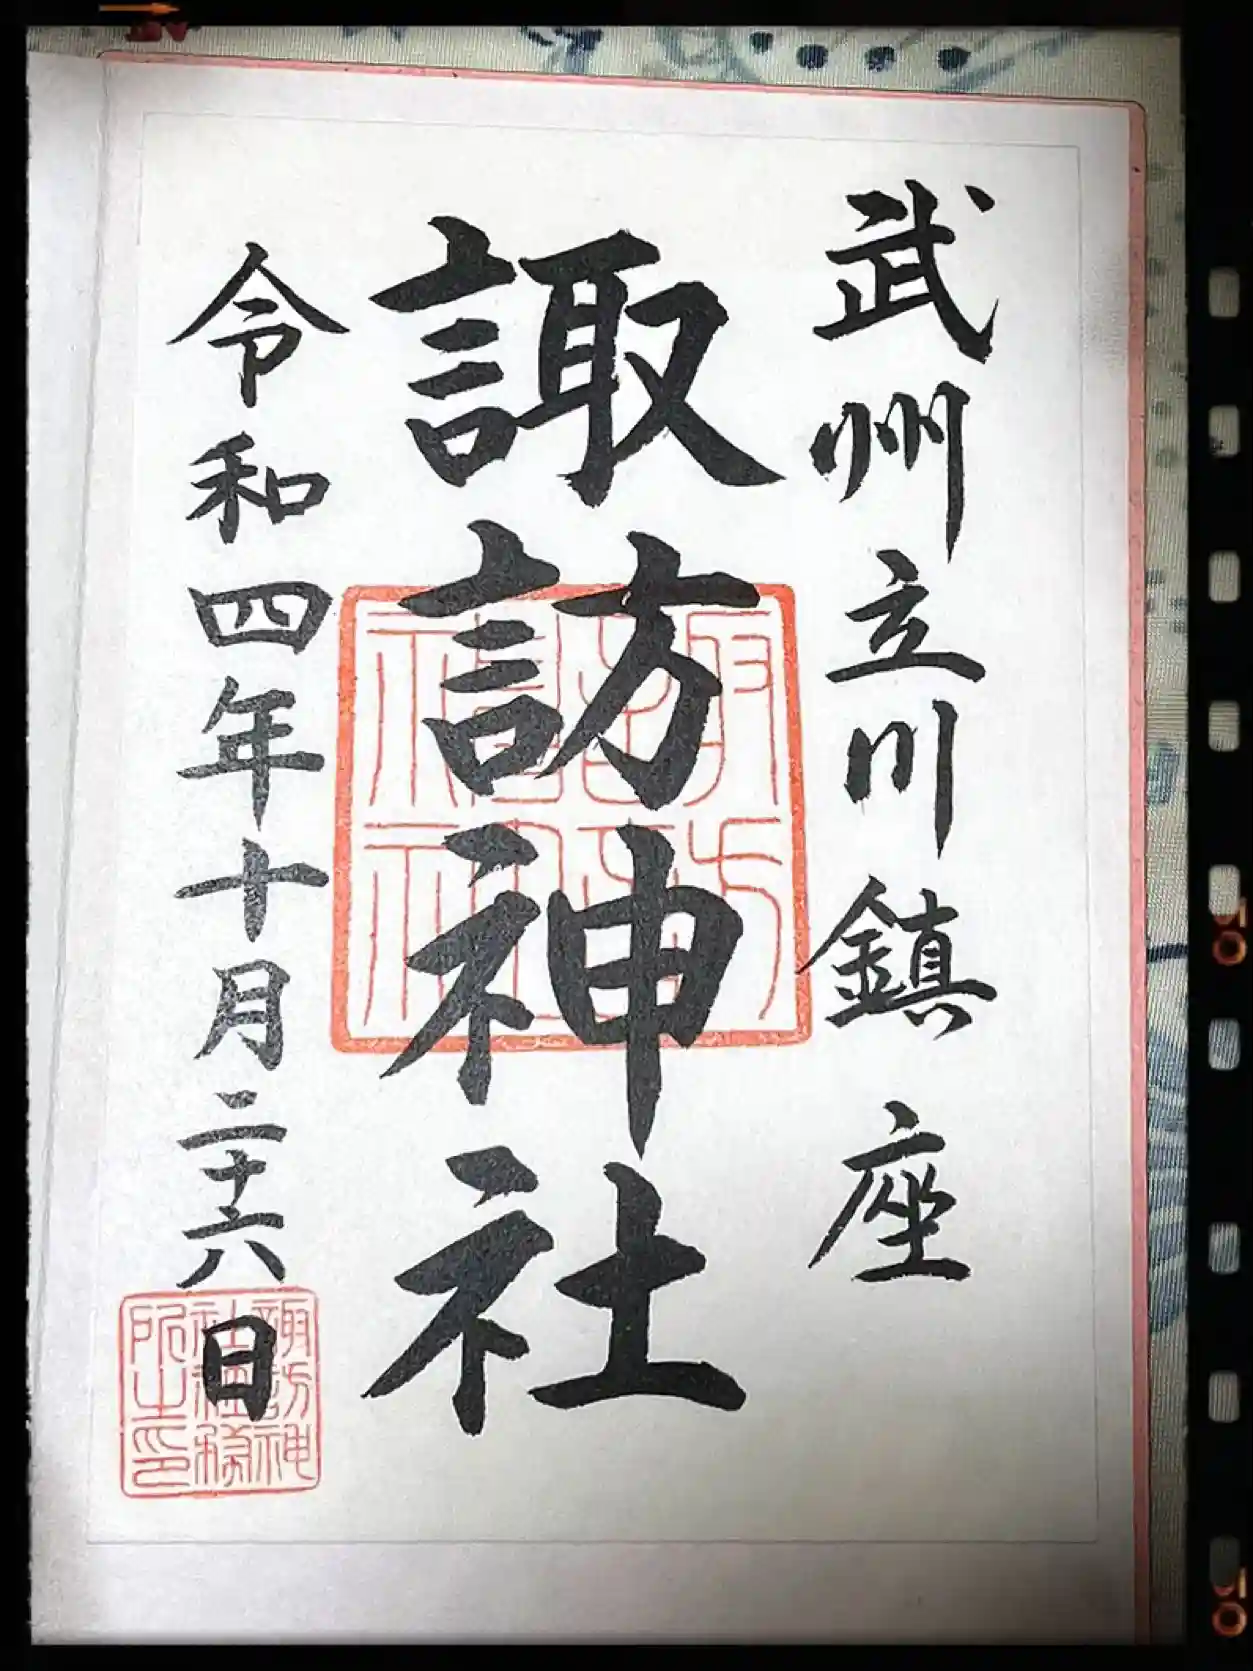 武州立川鎮座
諏訪神社
令和四年十月二十六日
諏訪神社
諏訪神社社務所之印